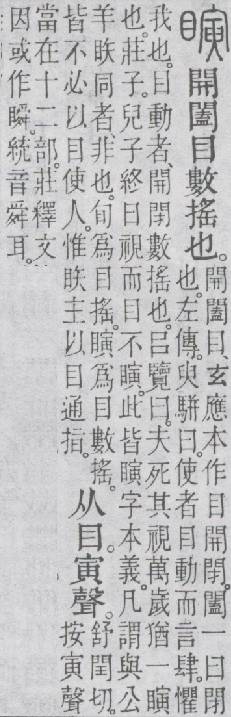 瞚開闔目數搖也。開闔目、玄應本作目開閉。闔一曰閉
也。左傳。臾駢曰。使者目動而言肆。懼
我也。目動者、開閉數搖也。呂覽曰。夫死其視萬歲猶一瞚
也。莊子。兒子終日視而目不瞚。此皆瞚字本義。凡謂與公
羊眣同者非也。旬爲目搖。瞚爲目數搖。
皆不必以目使人。惟眣主以目通指。
从目寅聲。舒閏切。
按寅聲
當在十二部。莊釋文
因或作瞬。統音舜耳。